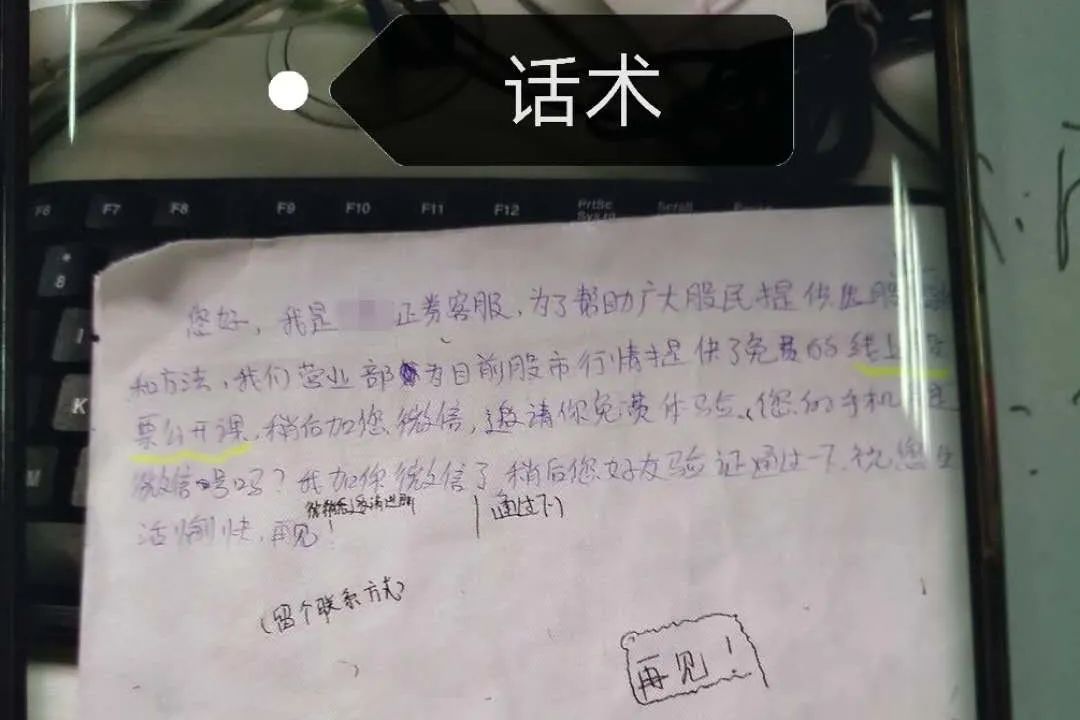 话术
F6 F7 F8 F9 F10 F11 F12 PrtSc Scroll
SysRq
* 8
I
K
M
您好，我是 证券客服，为了帮助广大股民提供选股
和方法，我们营业部为目前股市行情提供了免费的线上股
票公开课，稍后加您微信，邀请你免费体验，您的手机是
微信号吗？我加你微信了稍后您好友验证通过一下，祝您生
活愉快，再见！
通过下
（留个联系方式）
再见！